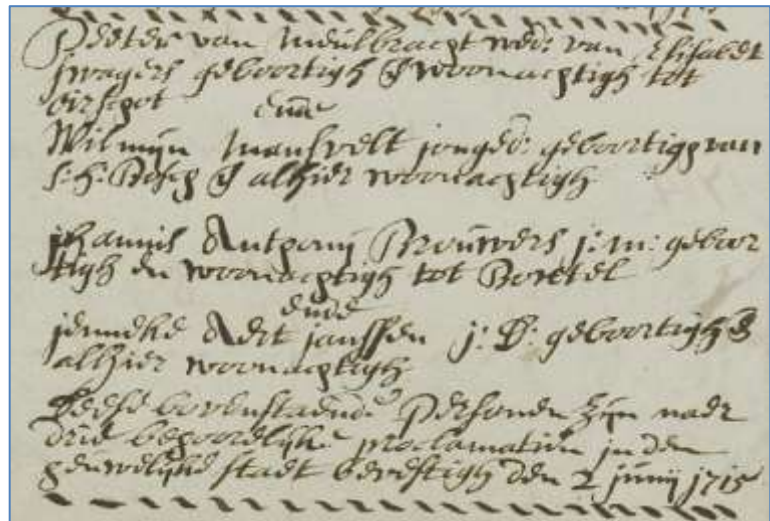 Peeter van Meulbracht wedr: van Elisabet
swagers geboortigh & woonachtigh tot
oirschot
ende
Wilmijn Mansvelt jonged: geboortigh van
S: H: Bosch & alhier woonachtigh
Antony Brouwers j: m: geboor
tigh en woonachtigh tot Boxtel
ende
jenneke Aert janssen j: D: geboortigh &
alhier woonachtigh
Deese bovenstaende Persoonen zijn naer
drie behoorlijke proclamatien in den
houwelijke staet bevestigh den 2 junij 1715